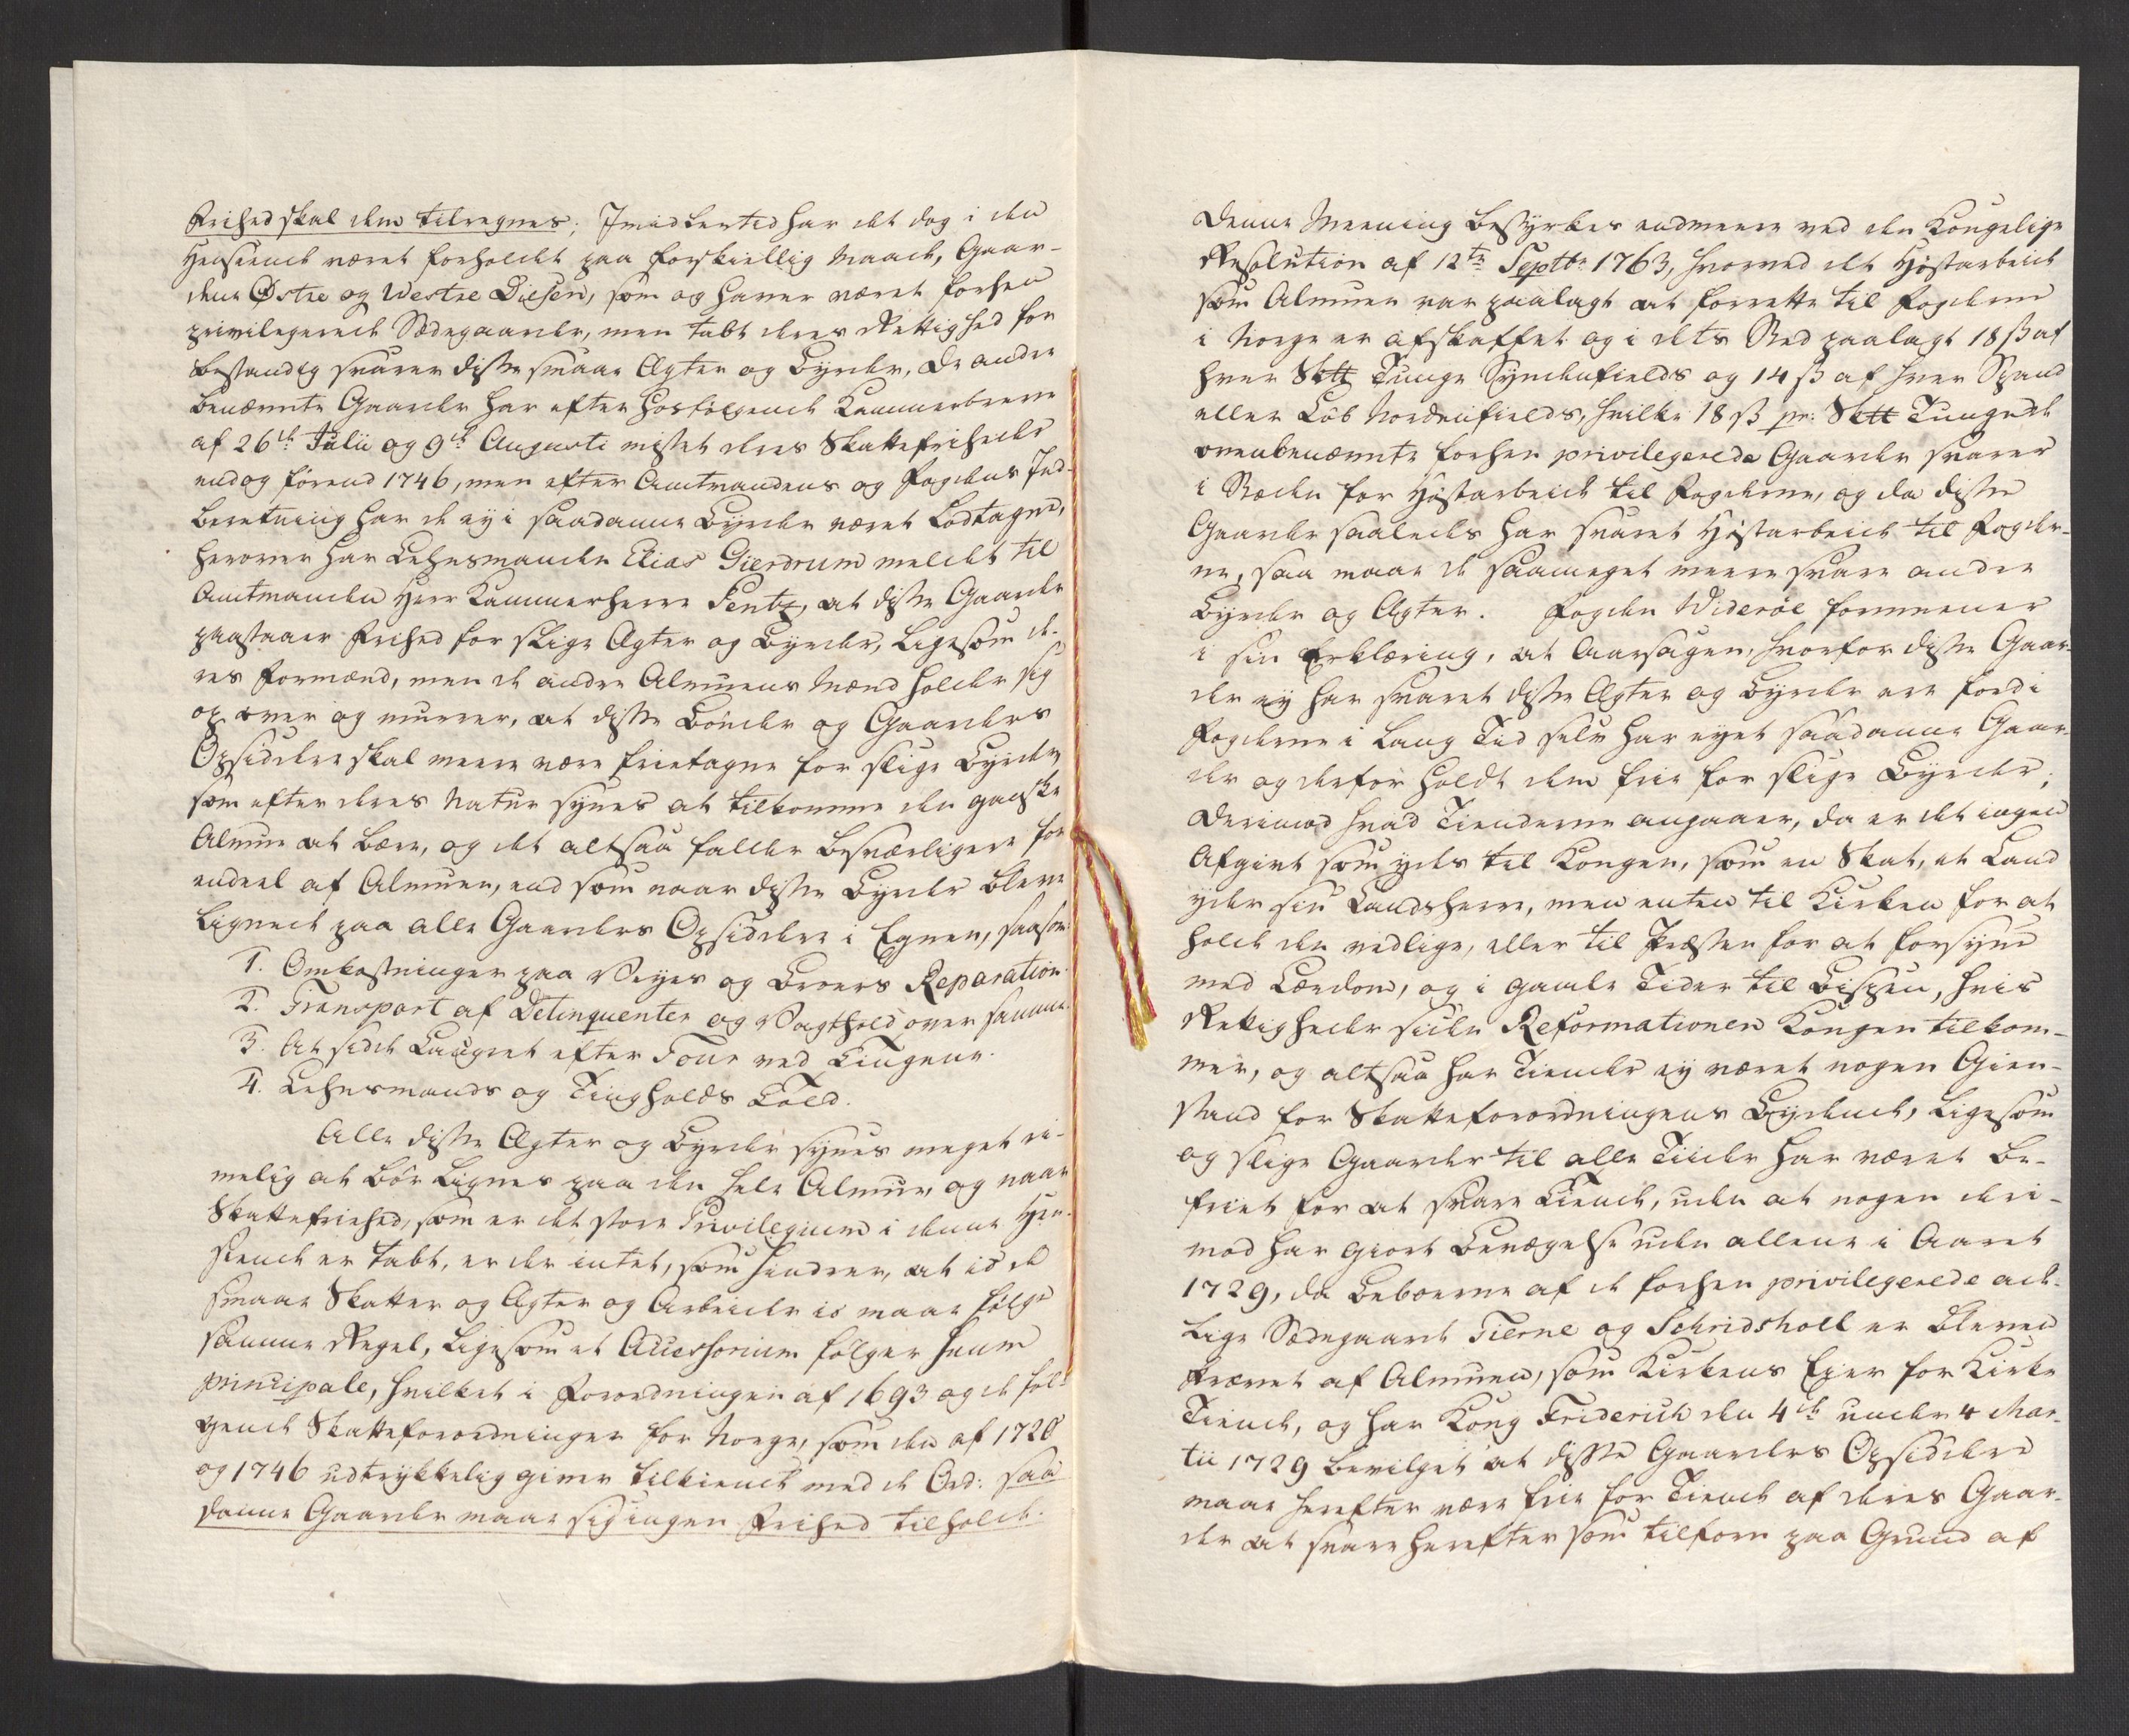 Frihed skal dem tilregnes; Imidlertid har det dog i den
Henseende været forholdet paa forskiellig Maade, Gaar-
dene Østre og Westre Diesen, som og haver været forhen
privilegerede Sædegaarder, men tabt deres Rettighed for
bestandig svarer disse smaae Ægter og Byrder, De andre
benævnte Gaarder har efter hosfølgende Kammerbreve
af 26de Julii og 9de Augusti mistet deres Skattefriheder
endog førend 1746, men efter Amtmandens og Fogdens Ind-
beretning har de ey i saadanne Byrder været Lodtagne,
herover har Lehnsmanden Elias Gierdrum meldet til
Amtmanden Herr Kammerherre Pentz, at disse Gaarde
paastaaer Frihed for slige Ægter og Byrder, ligesom de-
res Formænd, men de andre Almuens Mænd holder sig
op over og murrer, at disse Bönder og Gaarders
Opsiddere skal meere være frietagne for slige Byrder,
som efter deres Natur synes at tilkomme den gandske
Almue at bære, og det altsaa falder besværligere for
endeel af Almuen, end som naar disse Byrder bleve
lignede paa alle Gaarders Opsiddere i Egnen, saasom
1. Omkostninger paa Veyes og Broers Reparation
2. Transport af Delinquenter og Vagthold over samme
3. At sidde Laugret efter Tour ved Tingene.
4. Lehnsmands og Tingholds Told.
Alle disse Ægter og Byrder synes meget ri-
melig at bör lignes paa den hele Almue, og naar
Skattefriehed, som er det store Privilegium i denne Hen-
seende er tabt, er der intet, som hindrer, at io de
smaae Skatter og Ægter og Arbeider io maae følge
samme Regel, ligesom et Accessorium følger suum
principale, hvilket i Forordningen af 1693 og de føl-
gende Skatteforordninger for Norge, som den af 1720
og 1746 udtrykkelig giver tilkiende med de Ord: saa
danne Gaarder maae sig ingen Frihed tilholde.
Denne Meening bestyrkes endmeere ved den Kongelige
Resolution af 12te Septbr 1763, hvorved det Høstarbeide
som Almuen var paalagt at forrette til Fogderne
i Norge er afskaffet og i dets Sted paalagt 18 ß af
hver Sk℔ Tunge Syndenfields og 14 ß af hver Spand
eller Løb Nordenfields, hvilke 18 ß pr: Sk℔ Tunge de
ovenbenævnte forhen privilegerede Gaarder svarer
i Stæden for Høstarbeide til Fogderne, og da disse
Gaarder saaledes har svaret Høstarbeide til Fogder-
ne, saa maae de saameget meere svare andre
Byrder og Ægter. Fogden Widerøe formeener
i sin Erklæring, at Aarsagen, hvorfor disse Gaar-
der ey har svaret disse Ægter og Byrder ere fordi
Fogderne i lang Tid selv har eyet saadanne Gaar-
der og derfor holdt dem frie for slige Byrder;
Derimod hvad Tienderne angaaer, da er det ingen
Afgivt som ydes til Kongen, som en Skat, et Land
yder sin Landsherre, men enten til Kirken for at
holde den vedlige, eller til Præsten for at forsyne
med Lærdom, og i gamle Tider til Bispen, hvis
Rettigheder siden Reformationen Kongen tilkom-
mer, og altsaa har Tiender ey været nogen Gien-
stand for Skatteforordningens Bydende, ligesom
og slige Gaarder til alle Tiider har været be-
friet for at svare Tiende, uden at nogen deri-
mod har giort Bevægelse uden allene i Aaret
1729, da Beboerne af de forhen privilegerede ade-
lige Sædegaarde Tierne og Schridshoell er bleven
krævet af Almuen, som Kirkens Eier for Kirke
Tiende, og har Kong Friderich den 4de under 4 Mar-
tii 1729 bevilget at disse Gaarders Opsiddere
maae herefter være frie for Tiende af deres Gaar-
der at svare herefter som tilforn paa Grund af